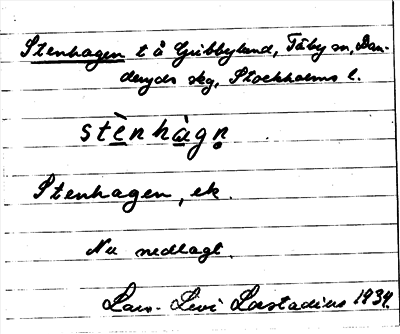 Stenhagen t å Gribbylund, Täby sn, Dan-
deryds skg, Stockholms l.
stè̱nhà̱gṇ
Stenhagen, ek.
Nu nedlagt.
Lars-Levi Læstadius 1934.